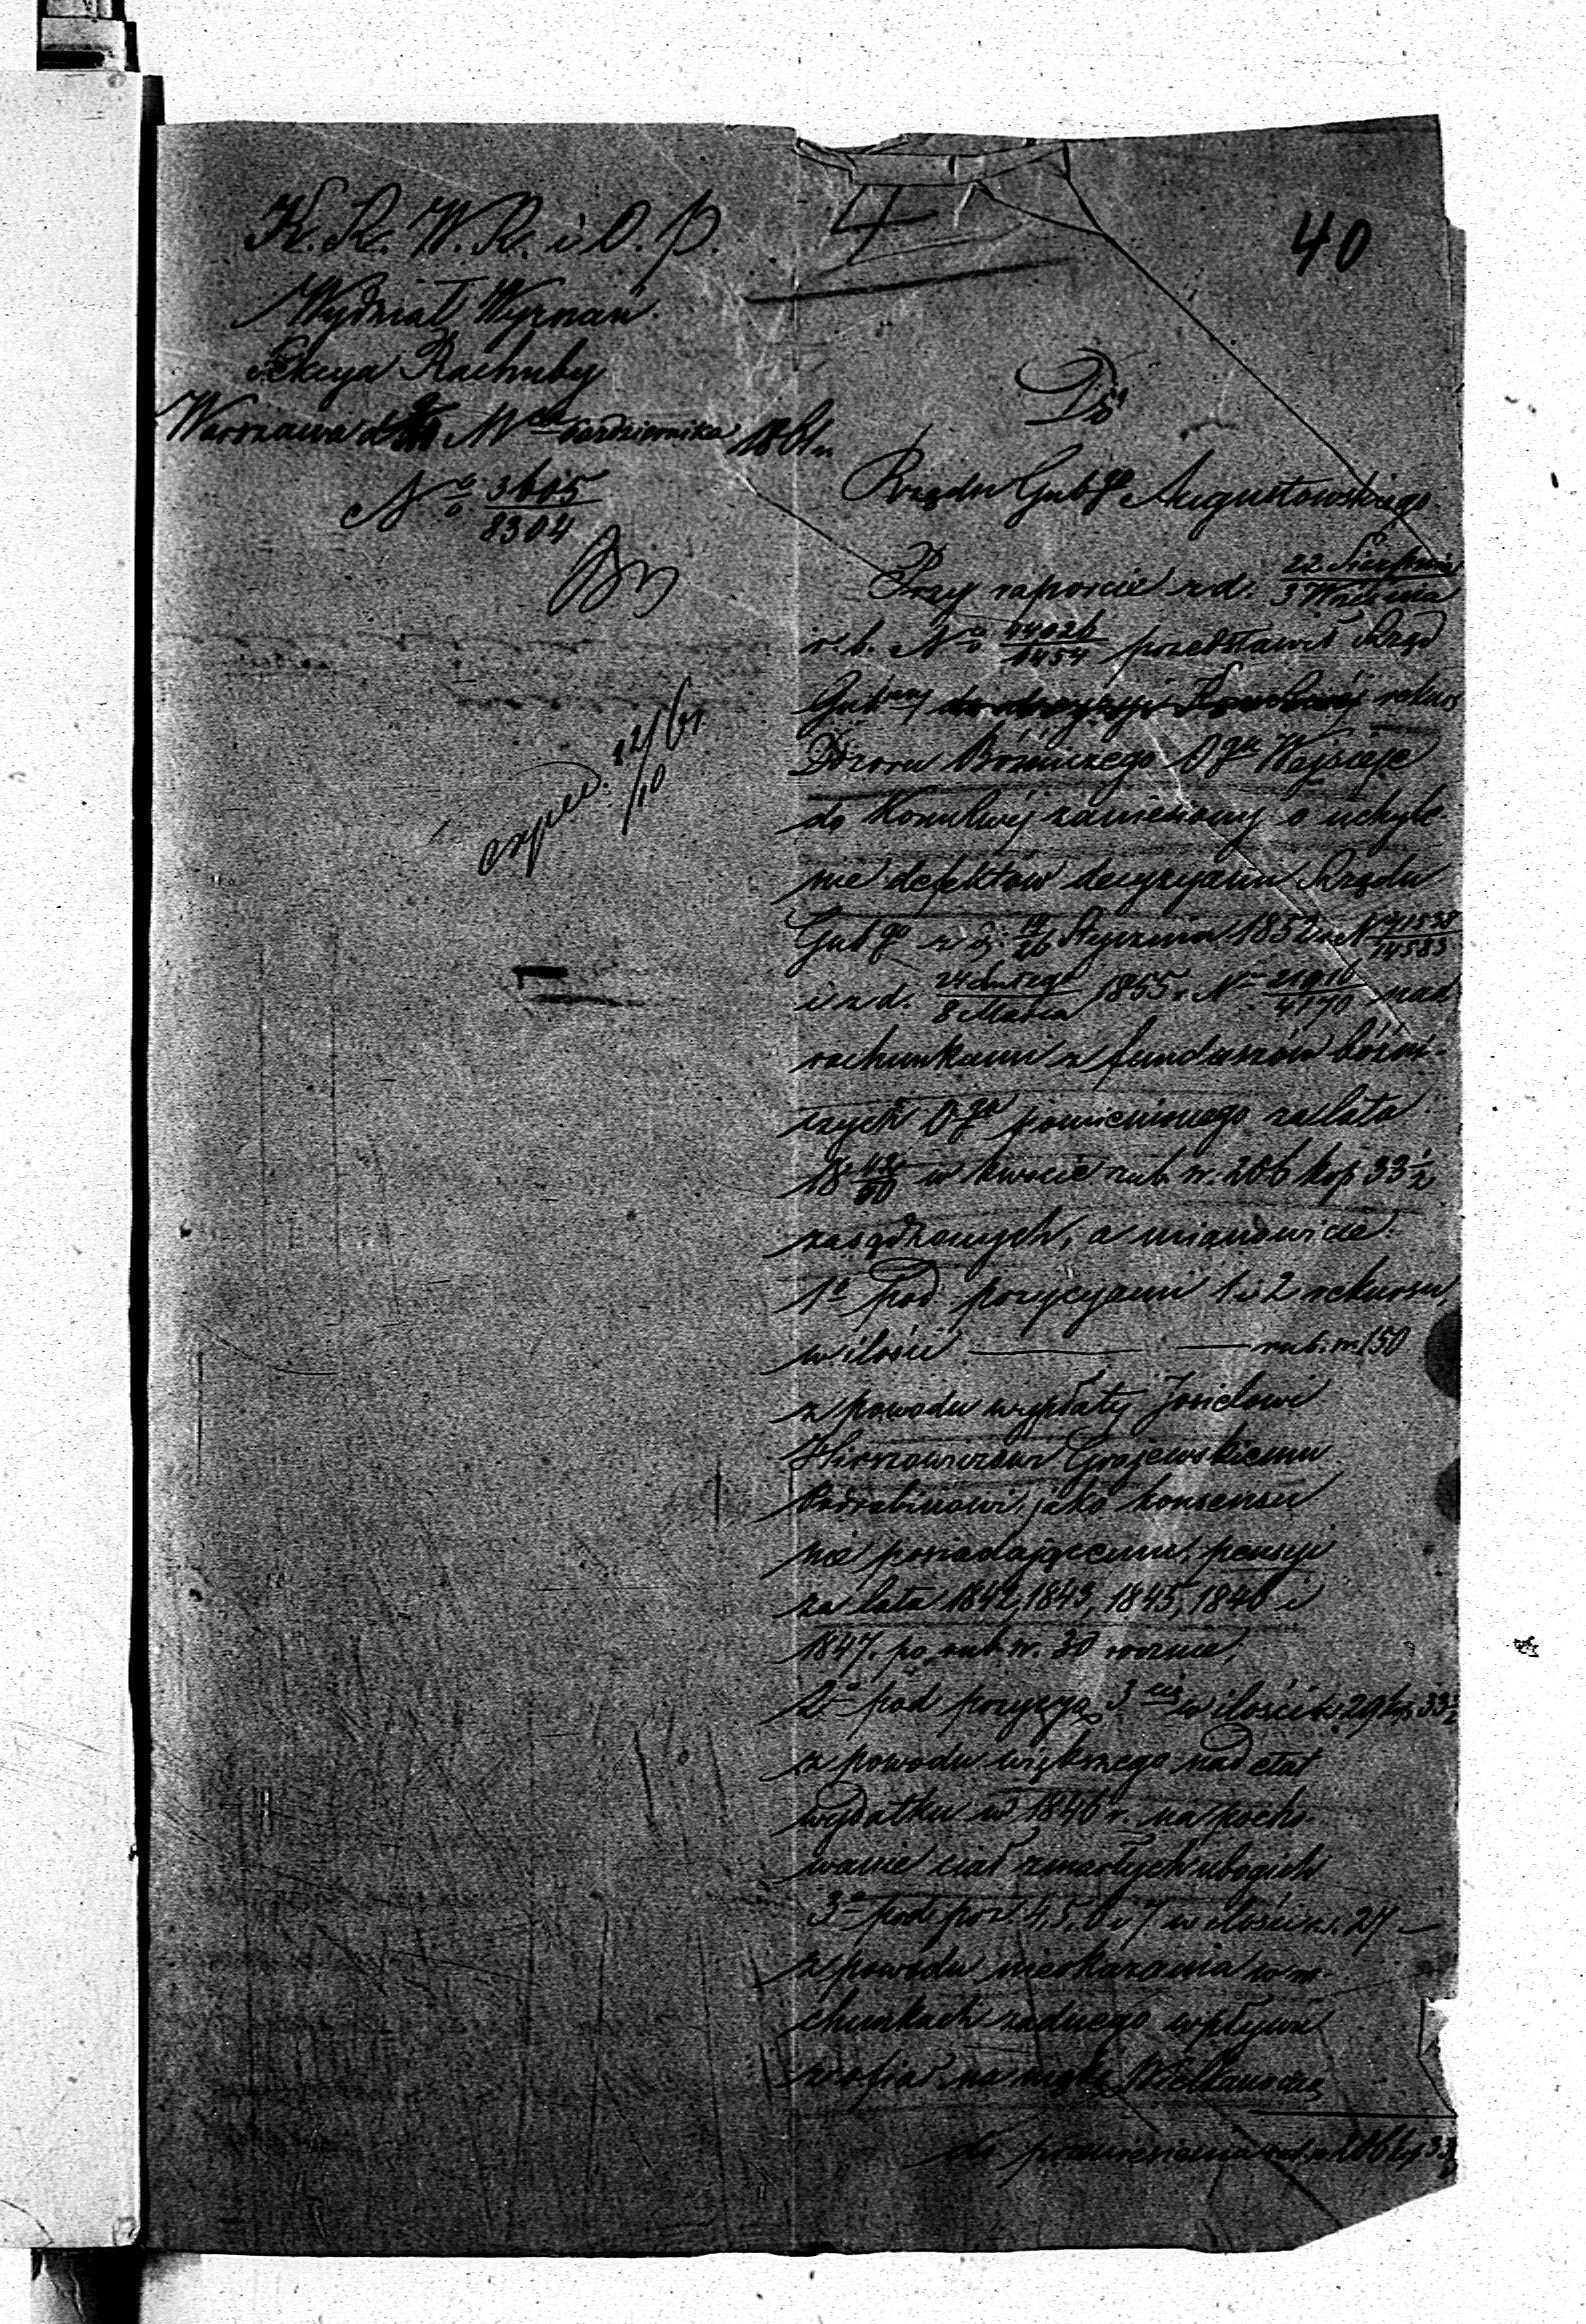 40
K. R. W. R. i O. P.
Wydział Wyznań
Sekcya Rachuby
Warszawa d Października 1861 r.
N° 3605/8304
exped: 22/10 61
Do
Rządu Gubgo Augustowskiego
Przy raporcie z d. 22 Sierpnia/3 Września
r. b. N° 44026/1454 przedstawił Rząd
Gubny do decyzyi rekurs
Dozoru Bóżniczego Ogu Wejsieje
do Komwéj zaniesiony o uchyle-
nie defektów decyzyami Rządu
Gubgo z d. 14/26 Stycznia 1852 r. N /14583
i z d. 24 Lutego/8 Marca 1855 r. N 21916/4170 nad
rachunkami z funduszów bóżni-
czych Ogu pomienionego za lata
18 42/50 w kwocie rub. sr. 206 kop 33½
zasądzonych, a mianowicie:
1° pod pozycyami 1 i 2 rekursu,
w ilości — rub. sr. 150
z powodu wypłaty Josielowi
Hirszowiczowi Grajewskiemu
Podrabinowi, jako konsensu
nie posiadającemu, pensyi
za lata 1842, 1843, 1845, 1846 i
1847. po rub. sr. 30 rocznie,
2° pod pozycyą 3cią w ilości rs. 29 kop. 33½
z powodu większego nad etat
wydatku w 1846 r. na pocho-
wanie ciał zmarłych ubogich
3° pod poz. 4, 5, 6 i 7 w ilości rs. 27 —
z powodu nieokazania w ra-
chunkach żadnego wpływu
z ofiar na mąkę Wielkanocną
do przeniesienia rub. sr. 206 k. 33½